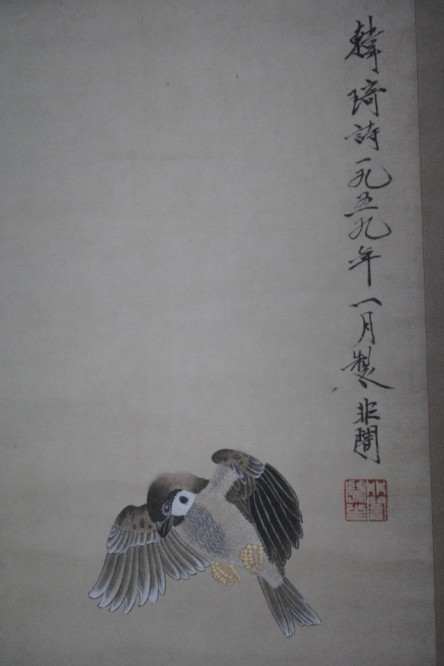 韓琦詩一九五九年一月製非闇